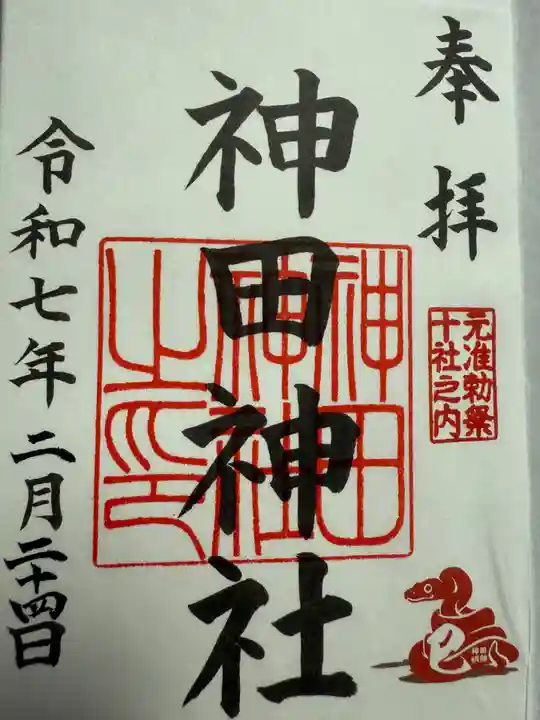 奉拝
元准勅祭
十社之内
神田神社
神田
神社
之印
巳
令和七年二月二十四日